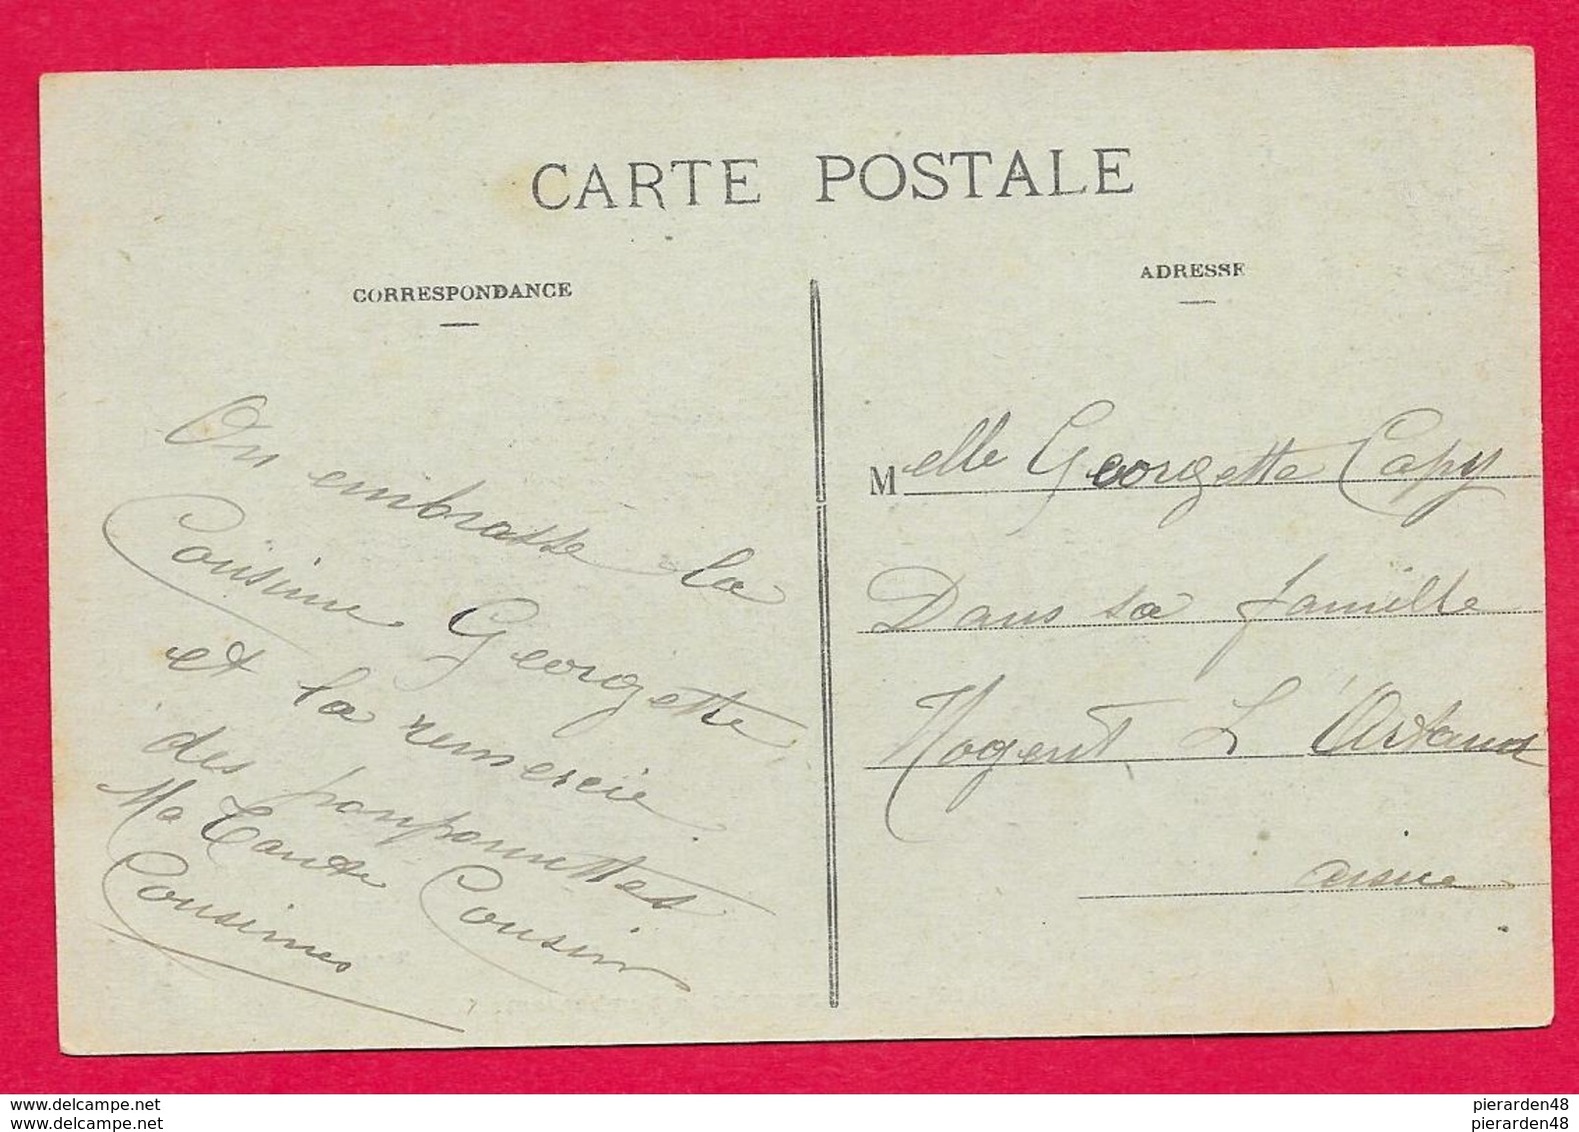 CARTE POSTALE
CORRESPONDANCE
ADRESSE
On embrasse la
Cousine Georgette
et la remercie
des pomponnettes
Ma Tante Cousin
Cousines
Melle Georgette Capy
Dans sa famille
Nogent L'Artaud
aisne
www.delcampe.net
www.delcampe.net
pierarden48
pierarden48